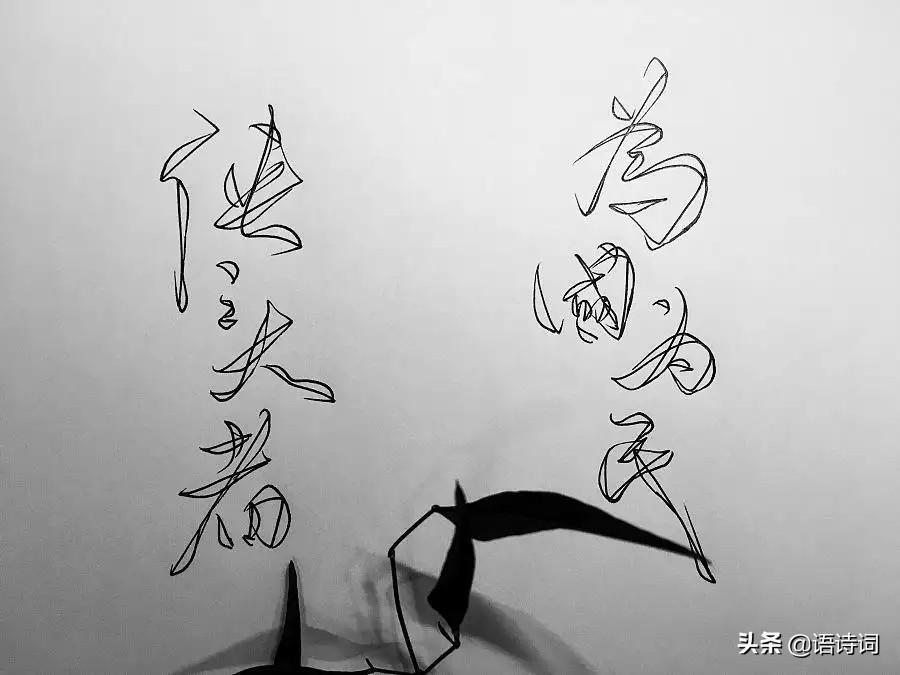 侠之大者
為國为民
头条 @语诗词